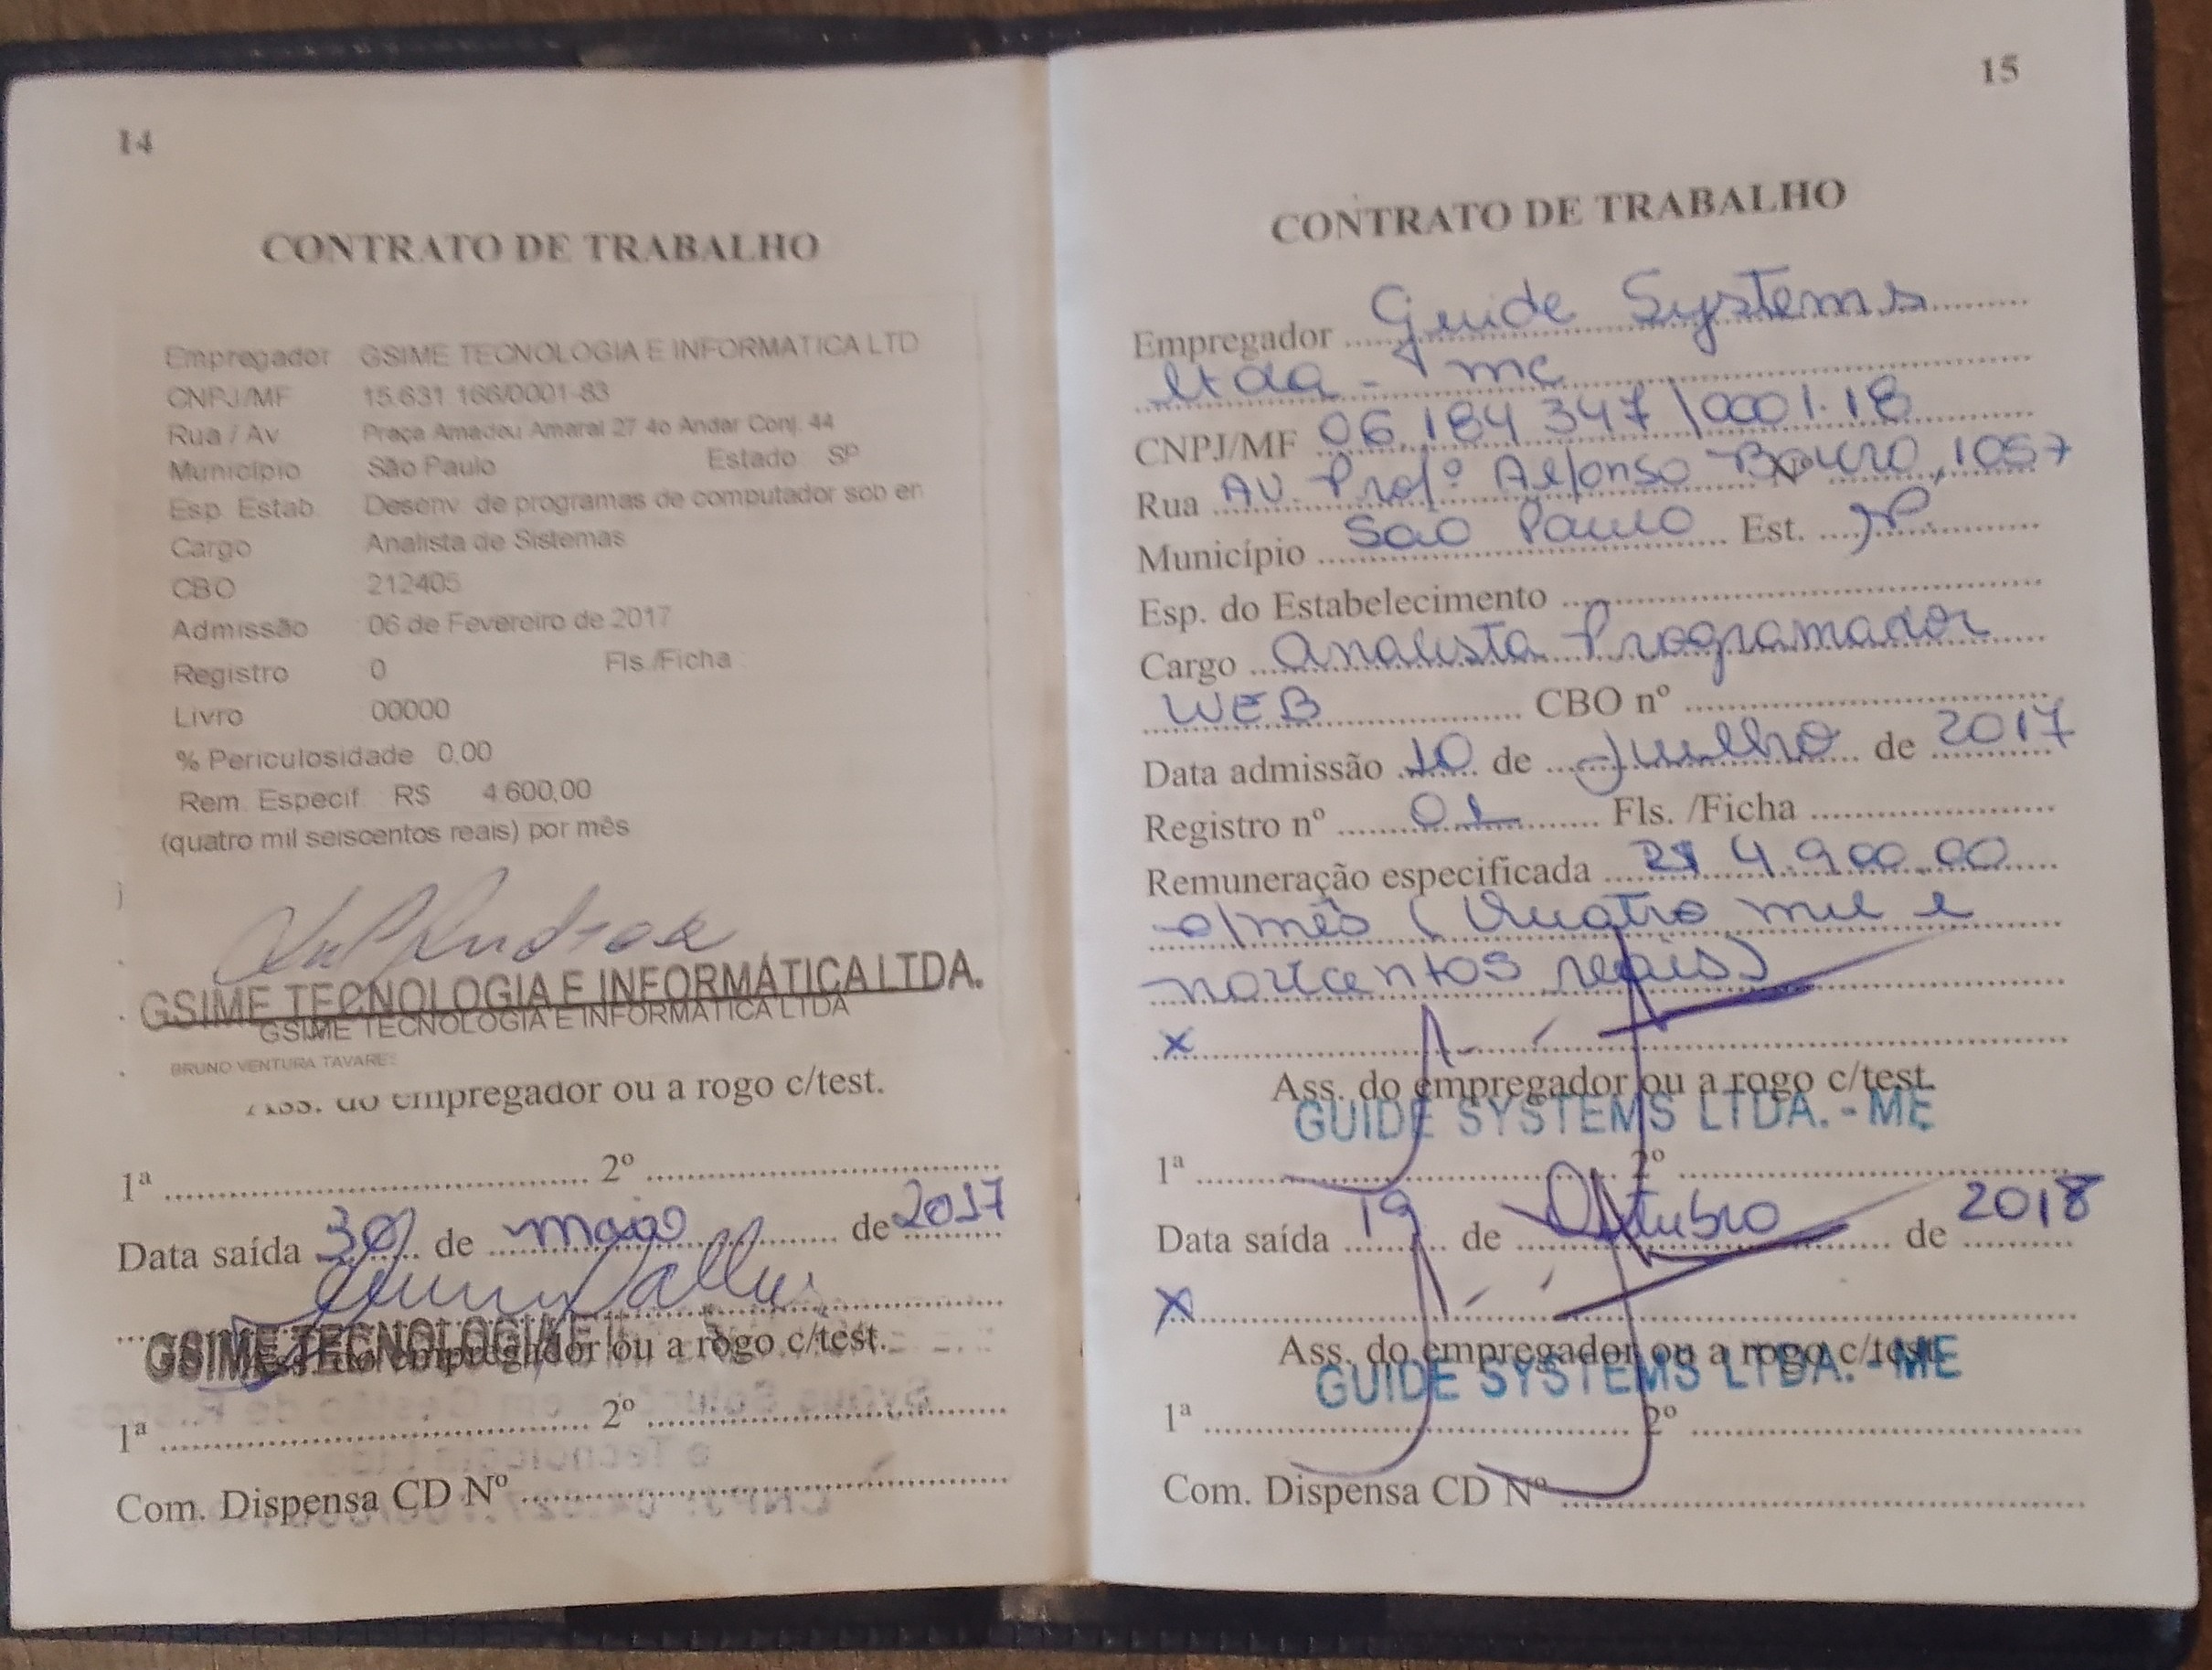 14
CONTRATO DE TRABALHO
Empregador GSIME TECNOLOGIA E INFORMATICA LTD
CNPJ/MF 15.631.166/0001-83
Rua / Av Praça Amadeu Amaral 27 4o Andar Conj. 44
Município São Paulo Estado SP
Esp. Estab. Desenv. de programas de computador sob en
Cargo Analista de Sistemas
CBO 212405
Admissão 06 de Fevereiro de 2017
Registro 0 Fls./Ficha
Livro 00000
% Periculosidade 0,00
Rem. Especif. R$ 4.600,00
(quatro mil seiscentos reais) por mês
GSIME TECNOLOGIA E INFORMÁTICA LTDA.
GSIME TECNOLOGIA E INFORMATICA LTDA
BRUNO VENTURA TAVARES
Ass. do empregador ou a rogo c/test.
1ª 2º
Data saída 30 de maio de 2017
GSIME TECNOLOGIA E I
Ass. do empregador ou a rogo c/test.
1ª 2º
Com. Dispensa CD Nº
15
CONTRATO DE TRABALHO
Empregador Guide Systems
ltda - me
CNPJ/MF 06.184.347\0001.18
Rua AV. Profº Alfonso Bovero, 1057
Município São Paulo Est. SP
Esp. do Estabelecimento
Cargo Analista Programador
WEB CBO nº
Data admissão 10 de Julho de 2017
Registro nº 01 Fls. /Ficha
Remuneração especificada R$ 4.900,00
p/mês (Quatro mil e
novecentos reais)
x
Ass. do empregador ou a rogo c/test.
GUIDE SYSTEMS LTDA. - ME
1ª 2º
Data saída 19 de Outubro de 2018
x
Ass. do empregador ou a rogo c/test.
GUIDE SYSTEMS LTDA. - ME
1ª 2º
Com. Dispensa CD Nº